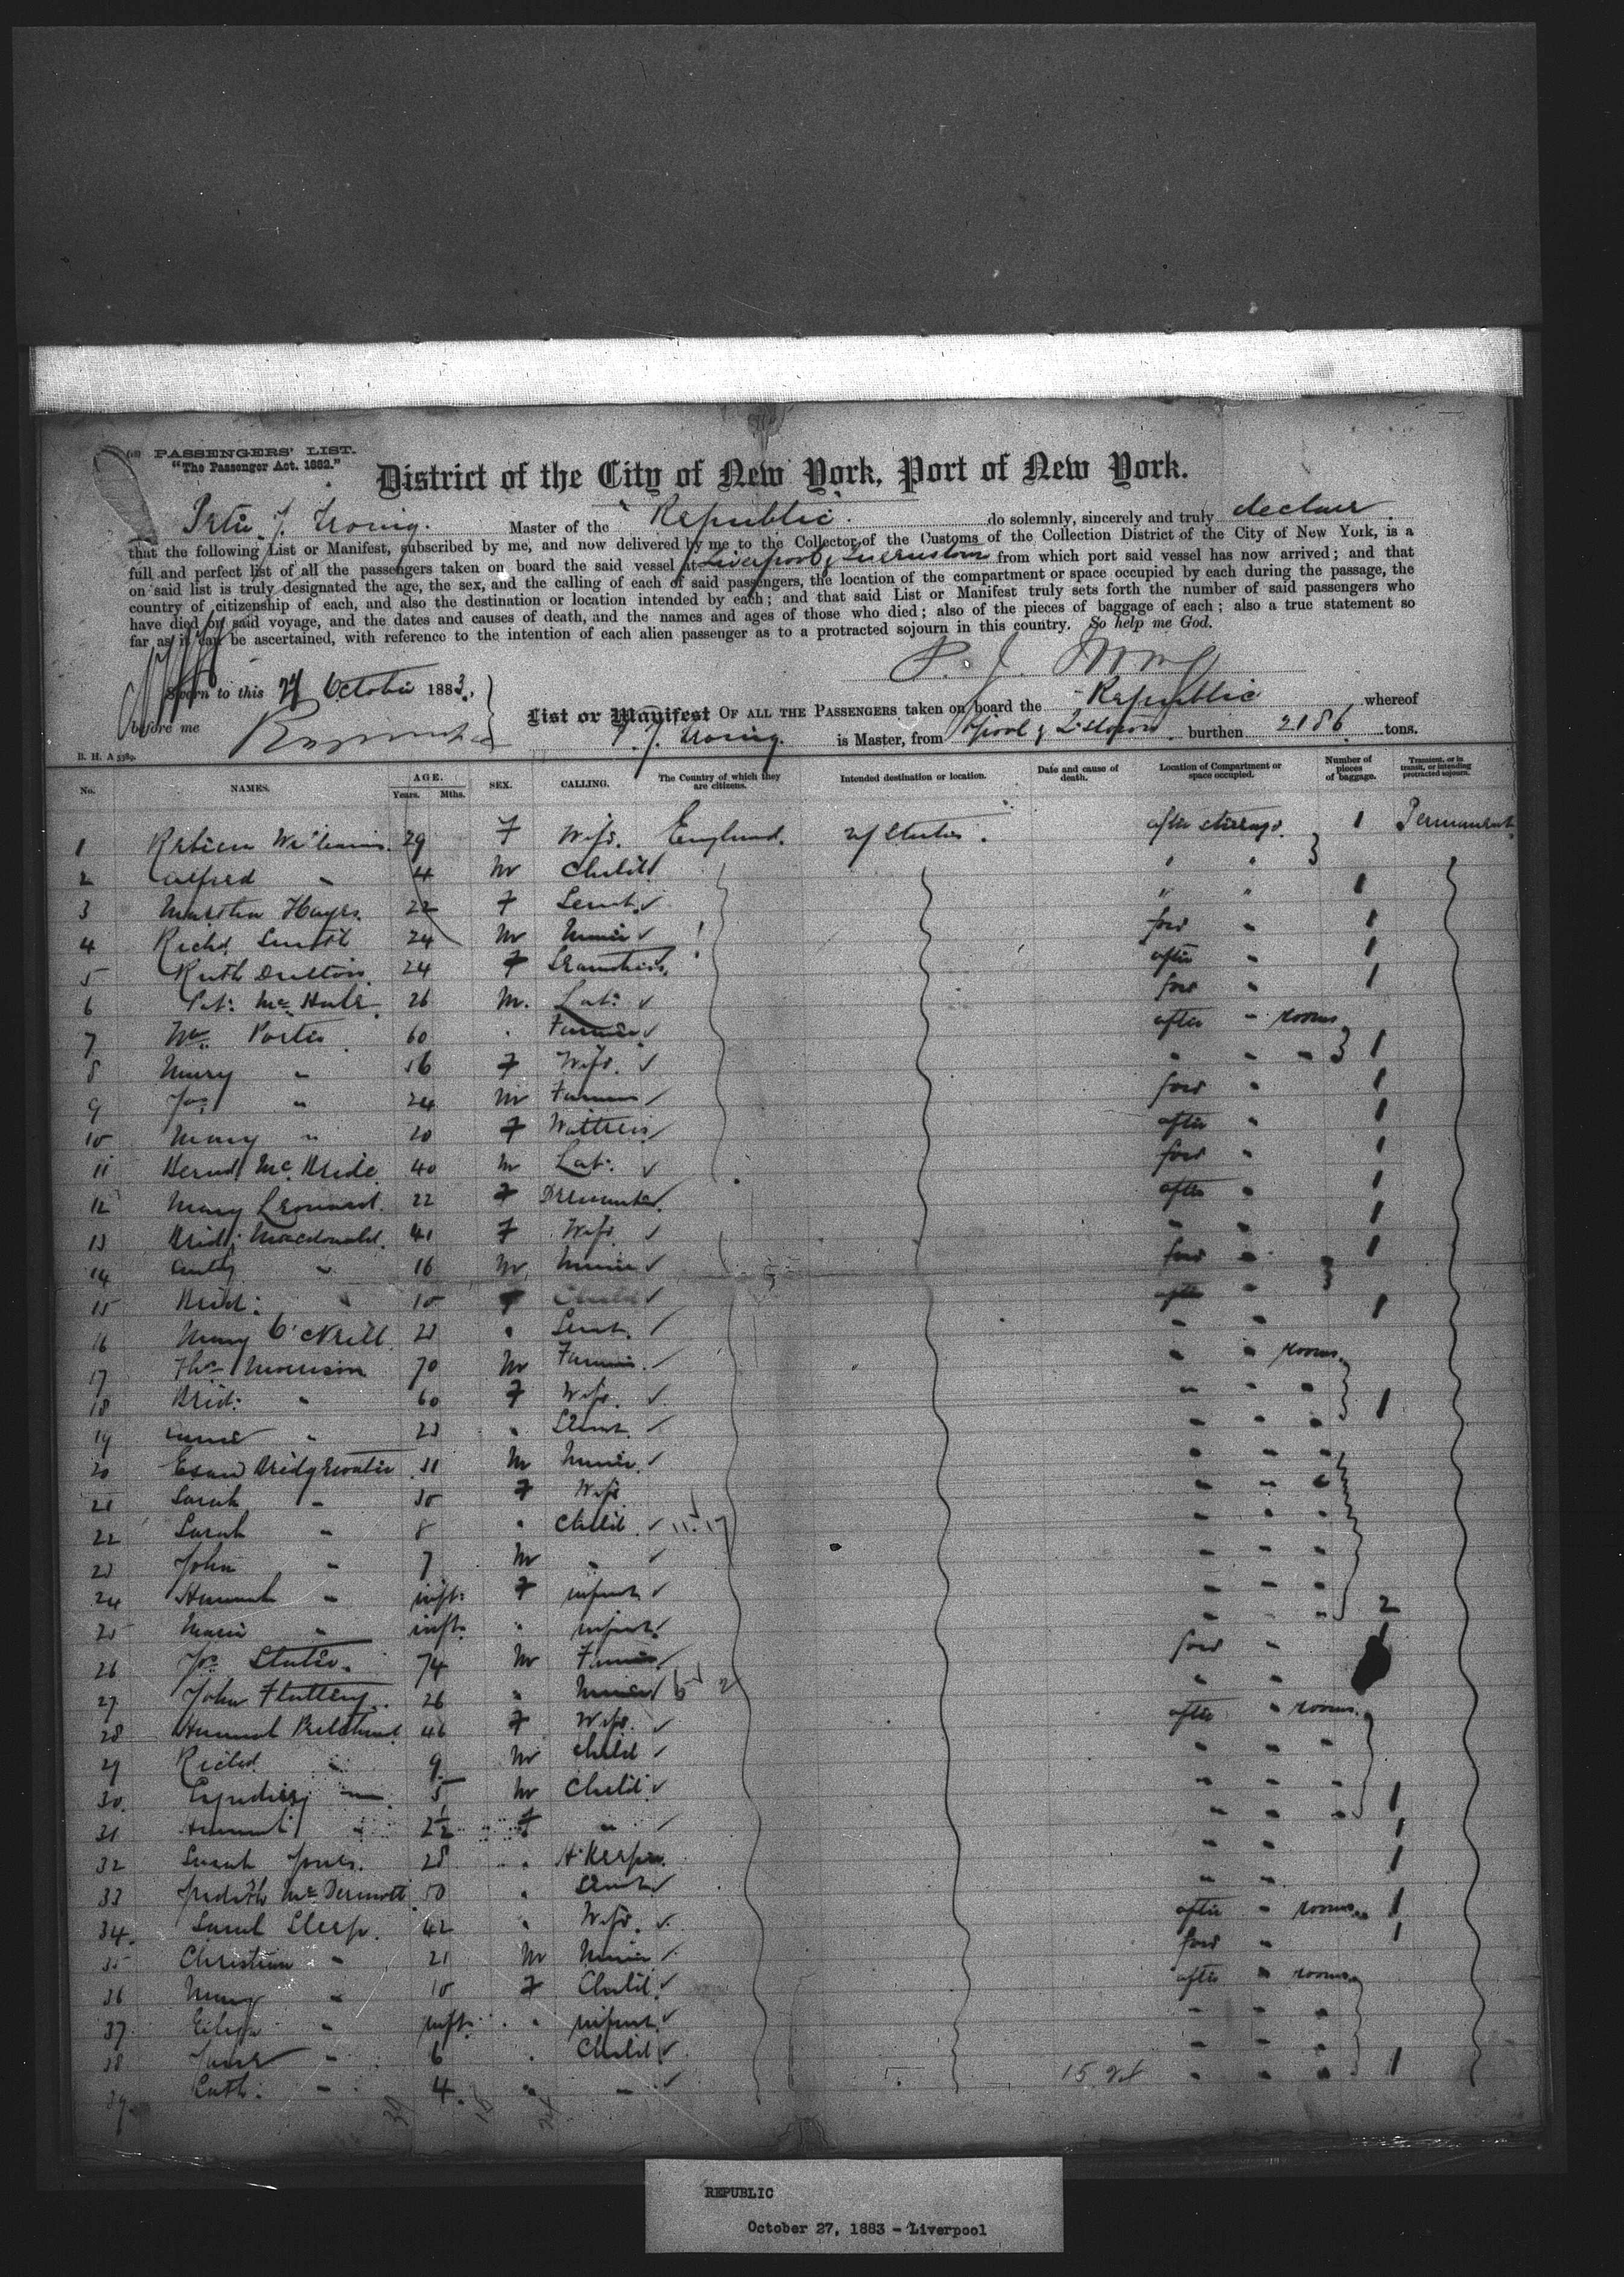 PASSENGERS' LIST.
"The Passenger Act. 1882."
District of the City of New York, Port of New York.
Peter J. Irving. Master of the Republic. do solemnly, sincerely and truly declare
that the following List or Manifest, subscribed by me, and now delivered by me to the Collector of the Customs of the Collection District of the City of New York, is a
full and perfect list of all the passengers taken on board the said vessel at Liverpool & Queenstown from which port said vessel has now arrived; and that
on said list is truly designated the age, the sex, and the calling of each of said passengers, the location of the compartment or space occupied by each during the passage, the
country of citizenship of each, and also the destination or location intended by each; and that said List or Manifest truly sets forth the number of said passengers who
have died on said voyage, and the dates and causes of death, and the names and ages of those who died; also of the pieces of baggage of each; also a true statement so
far as it can be ascertained, with reference to the intention of each alien passenger as to a protracted sojourn in this country. So help me God.
P. J. Irving
Sworn to this 27 October 1883.,
before me
List or Manifest OF ALL THE PASSENGERS taken on board the Republic whereof
P. J. Irving. is Master, from L'pool & burthen 2186 tons.
B. H. A 3389.
No. NAMES. AGE. Years. Mths. SEX. CALLING. The Country of which they are citizens. Intended destination or location. Date and cause of death. Location of Compartment or space occupied. Number of pieces of baggage. Transient, or in transit, or intending protracted sojourn.
1 Williams. 29 F Wife. England. U States. after steerage. 1 Permanent
2 Alfred " 4 M Child " "
3 Martha Hayes 22 F Servt. " " 1
4 Richd Smith 24 M Miner ford " 1
5 Ruth 24 F after " 1
6 Pat: McHale 26 M. Lab: ford " 1
7 Wm Porter 60 " Farmer after " rooms
8 Mary " 56 F Wife. " " " 1
9 Jas " 24 M Farmer ford " 1
10 Mary " 20 F Waitress after " 1
11 Bernd McBride 40 M Lab: ford " 1
12 Mary Leonard. 22 F Dressmaker after " 1
13 Brid: Macdonald. 41 F Wife " " 1
14 Anty " 16 M Miner ford " 1
15 Brid: " 10 F Child after "
16 Mary O'Neill 23 " Servt. " " 1
17 Thos Morrison 70 M Farmer. " " rooms.
18 Brid: " 60 F Wife. " " "
19 Annie " 23 " Servt. " " " 1
20 Esau Bridgewater 31 M Miner. " " "
21 Sarah " 30 F Wife " " "
22 Sarah " 8 " Child. " " "
23 John " 7 M " " " "
24 Hannah " inft. F infant " " "
25 Maria " inft. " infant " " " 2
26 Jas 74 M Farmer ford "
27 John Flattery. 26 " Miner " "
28 Hannah 46 F Wife. after " rooms.
29 Richd " 9 M Child " " "
30. " 5 M Child. " " "
31 Hannah " 2½ F " " " " 1
32 Sarah Jones. 28 " H. Keeper. " " 1
33 Judith McDermott 50 " Servt " " 1
34. Sarah Sleep. 42 " Wife. after " rooms 1
35 Christian " 21 M Miner ford " 1
36 Mary " 10 F Child. after " rooms
37 Eliza " inft. " infant " " "
38 Jane " 6 " Child " " "
39. Cath: " 4. " " " " " 1
REPUBLIC
October 27, 1883 - Liverpool